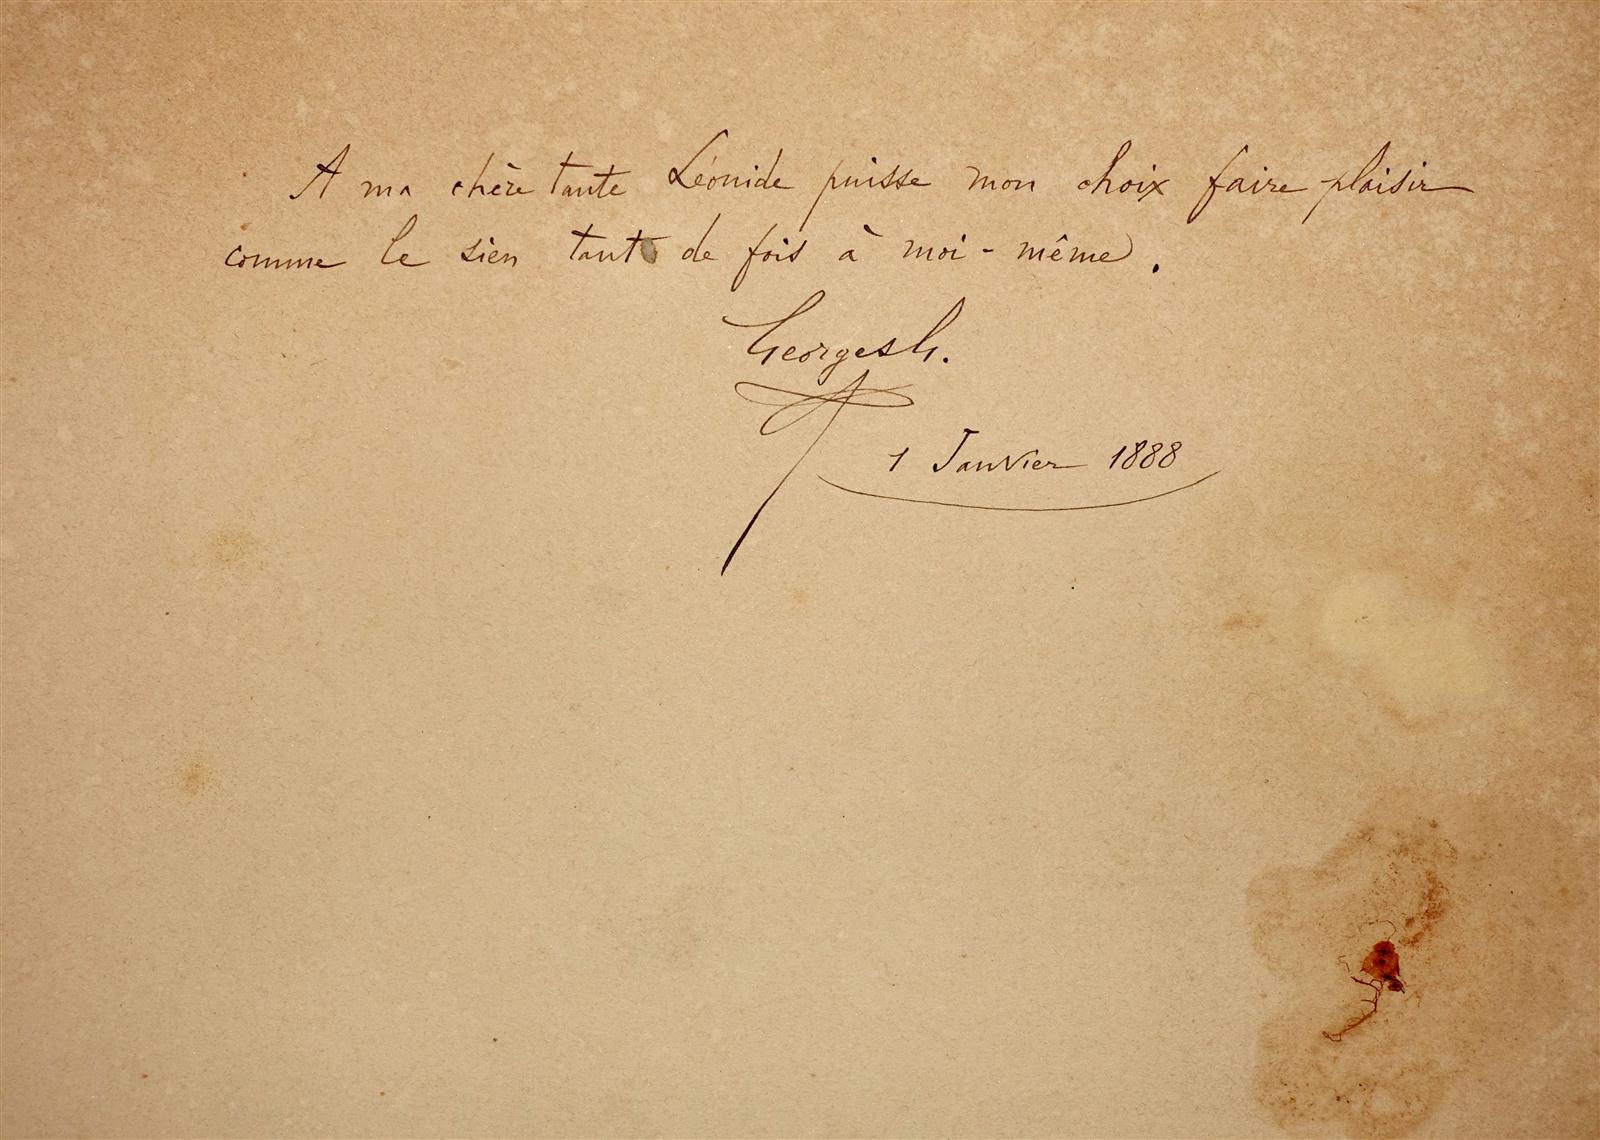 A ma chère tante Léonide puisse mon choix faire plaisir
comme le sien tant de fois à moi-même.
Georges G.
1 Janvier 1888